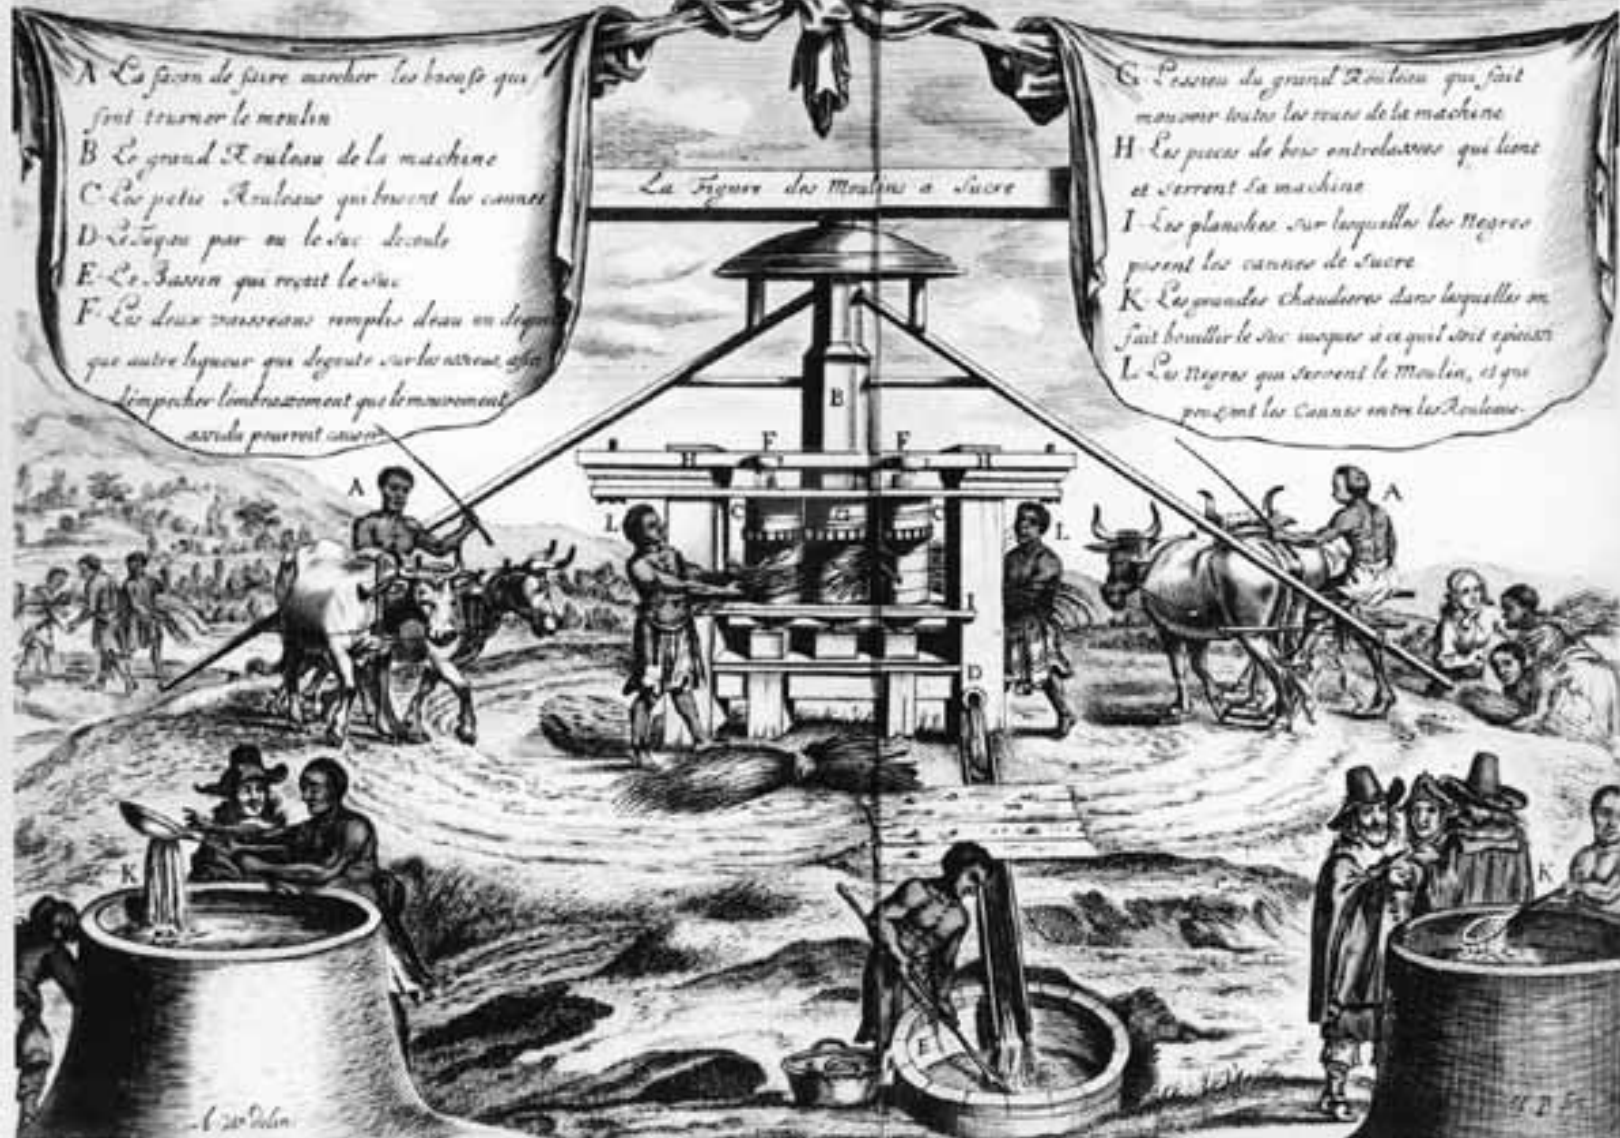 A La facon de faire marcher les boeufs qui
font tourner le moulin
B Le grand Rouleau de la machine
C Les petis Rouleaus qui brisent les cannes
D Le Tuyau par ou le suc decoule
E Le Bassin qui reçoit le suc
F Les deux vaisseaus remplis deau ou de
que autre liqueur qui degoute sur les
dempecher lembrazement que le mouvement
assidu pourroit causer
La Figure des Moulins a Sucre
G Lessieu du grand Rouleau qui fait
mouvoir toutes les roues de la machine
H Les pieces de bois entrelassees qui lient
et serrent la machine
I Les planches sur lesquelles les Negres
posent les cannes de sucre
K Les grandes Chaudieres dans lesquelles on
fait bouillir le suc iusques à ce quil soit epoissi
L Les Negres qui servent le Moulin, et qui
poussent les Cannes entre les Rouleaus
B
F F
H H
A A
L C G C L
I
D
K K
E